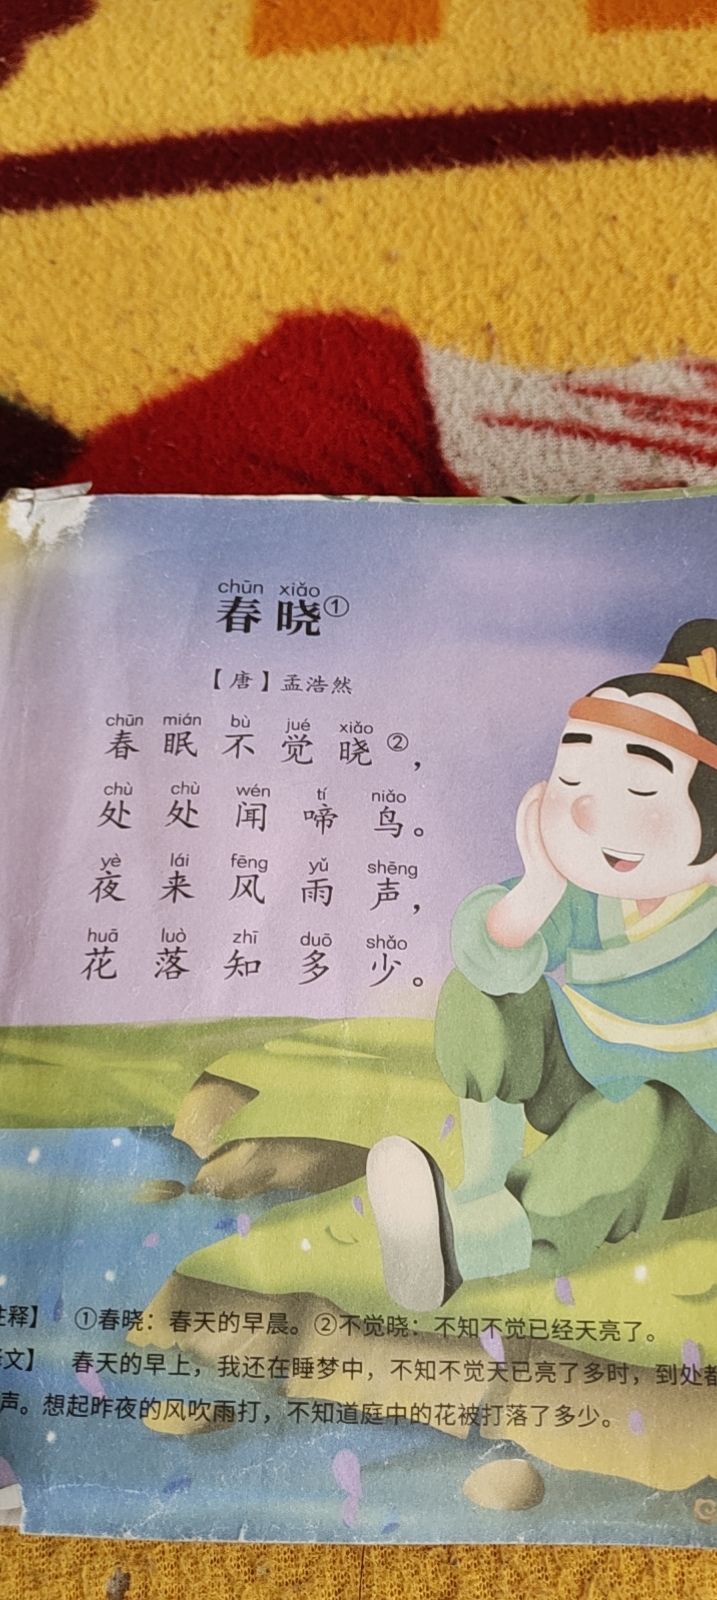 chūn xiǎo
春晓①
【唐】孟浩然
chūn mián bù jué xiǎo
春眠不觉晓②，
chù chù wén tí niǎo
处处闻啼鸟。
yè lái fēng yǔ shēng
夜来风雨声，
huā luò zhī duō shǎo
花落知多少。
释】 ①春晓：春天的早晨。②不觉晓：不知不觉已经天亮了。
文】 春天的早上，我还在睡梦中，不知不觉天已亮了多时，到处都
声。想起昨夜的风吹雨打，不知道庭中的花被打落了多少。